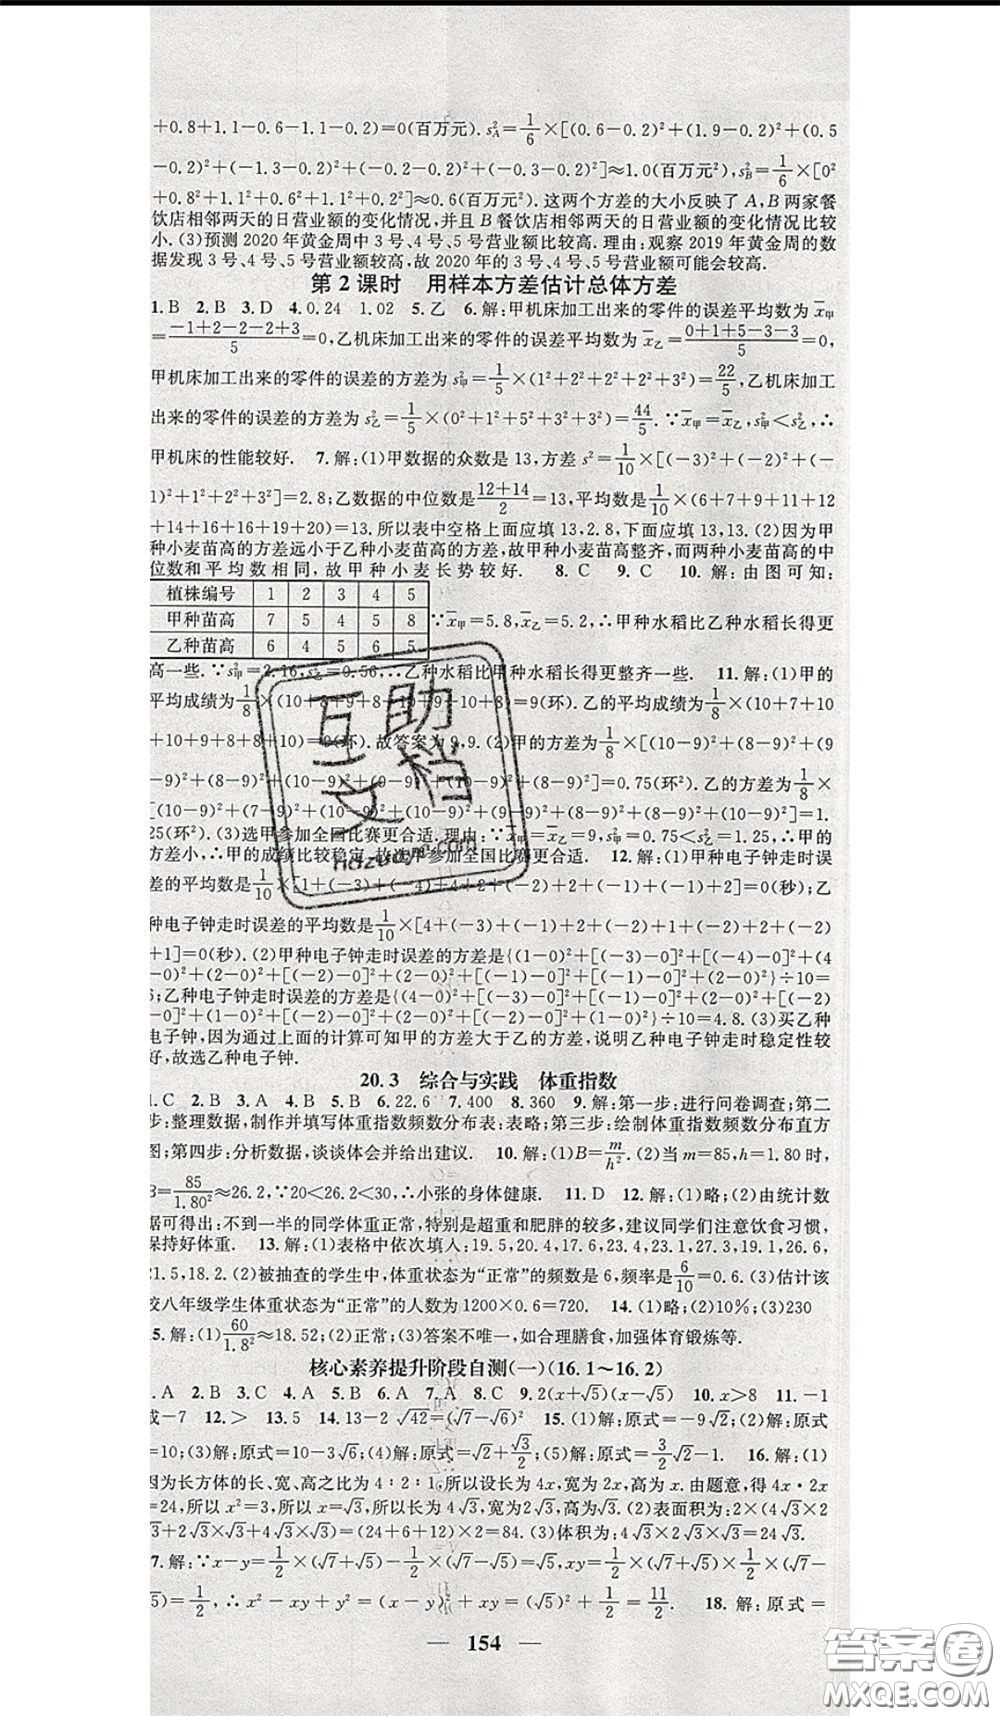 +0.8+1.1-0.6-1.1-0.2)=0(百万元).s²_A=1/6×[(0.6-0.2)²+(1.9-0.2)²+(0.5
-0.2)²+(-1.3-0.2)²+(-0.2-0.2)²+(-0.3-0.2)²]≈1.0(百万元),s²_B=1/6×[0²
+0.8²+1.1²+0.6²+1.1²+0.2²]≈0.6(百万元).这两个方差的大小反映了A,B两家餐
饮店相邻两天的日营业额的变化情况,并且B餐饮店相邻两天的日营业额的变化情况比较
小.(3)预测2020年黄金周中3号、4号、5号营业额比较高.理由:观察2019年黄金周的数
据发现3号、4号、5号营业额较高,故2020年的3号、4号、5号营业额可能会较高.
第2课时 用样本方差估计总体方差
1.B 2.B 3.D 4.0.24 1.02 5.乙 6.解:甲机床加工出来的零件的误差平均数为x̄甲
=(-1+2-2-2+3)/5=0,乙机床加工出来的零件的误差平均数为x̄乙=(0+1+5-3-3)/5=0,
甲机床加工出来的零件的误差的方差为s²甲=1/5×(1²+2²+2²+2²+3²)=22/5,乙机床加工
出来的零件的误差的方差为s²乙=1/5×(0²+1²+5²+3²+3²)=44/5.∵x̄甲=x̄乙,s²甲<s²乙,∴
甲机床的性能较好. 7.解:(1)甲数据的众数是13,方差s²=1/10×[(-3)²+(-2)²+(-
1)²+1²+2²+3²]=2.8;乙数据的中位数是(12+14)/2=13,平均数是1/10×(6+7+9+11+12
+14+16+16+19+20)=13.所以表中空格上面应填13,2.8,下面应填13,13.(2)因为甲
种小麦苗高的方差远小于乙种小麦苗高的方差,故甲种小麦苗高整齐,而两种小麦苗高的中
位数和平均数相同,故甲种小麦长势较好. 8.C 9.C 10.解:由图可知:
植株编号 1 2 3 4 5
甲种苗高 7 5 4 5 8
乙种苗高 6 4 5 6 5
∵x̄甲=5.8,x̄乙=5.2,∴甲种水稻比乙种水稻长得更
高一些.∵s²甲=2.16,s²乙=0.56,∴乙种水稻比甲种水稻长得更整齐一些. 11.解:(1)甲的
平均成绩为1/8×(10+8+9+8+10+9+10+8)=9(环).乙的平均成绩为1/8×(10+7+10
+10+9+8+8+10)=9(环).故答案为9,9.(2)甲的方差为1/8×[(10-9)²+(8-9)²+(9
-9)²+(8-9)²+(10-9)²+(9-9)²+(10-9)²+(8-9)²]=0.75(环²).乙的方差为1/8×
[(10-9)²+(7-9)²+(10-9)²+(10-9)²+(9-9)²+(8-9)²+(8-9)²+(10-9)²]=1.
25(环²).(3)选甲参加全国比赛更合适.理由:∵x̄甲=x̄乙=9,s²甲=0.75<s²乙=1.25,∴甲的
方差小,∴甲的成绩比较稳定,故选甲参加全国比赛更合适. 12.解:(1)甲种电子钟走时误
差的平均数是1/10×[1+(-3)+(-4)+4+2+(-2)+2+(-1)+(-1)+2]=0(秒);乙
种电子钟走时误差的平均数是1/10×[4+(-3)+(-1)+2+(-2)+1+(-2)+2+(-2)
+1]=0(秒).(2)甲种电子钟走时误差的方差是{(1-0)²+[(-3)-0]²+[(-4)-0]²+
(4-0)²+(2-0)²+[(-2)-0]²+(2-0)²+[(-1)-0]²+[(-1)-0]²+(2-0)²}÷10=
6;乙种电子钟走时误差的方差是{(4-0)²+[(-3)-0]²+[(-1)-0]²+(2-0)²+[(-2)
-0]²+(1-0)²+[(-2)-0]²+(2-0)²+[(-2)-0]²+(1-0)²}÷10=4.8.(3)买乙种
电子钟,因为通过上面的计算可知甲的方差大于乙的方差,说明乙种电子钟走时稳定性较
好,故选乙种电子钟.
20.3 综合与实践 体重指数
1.C 2.B 3.A 4.B 5.B 6.22.6 7.400 8.360 9.解:第一步:进行问卷调查;第二
步:整理数据,制作并填写体重指数频数分布表:表略;第三步:绘制体重指数频数分布直方
图;第四步:分析数据,谈谈体会并给出建议. 10.解:(1)B=m/h².(2)当m=85,h=1.80时,
B=85/1.80²≈26.2,∵20<26.2<30,∴小张的身体健康. 11.D 12.解:(1)略;(2)由统计数
据可得出:不到一半的同学体重正常,特别是超重和肥胖的较多,建议同学们注意饮食习惯,
保持好体重. 13.解:(1)表格中依次填入:19.5,20.4,17.6,23.4,23.1,27.3,19.1,26.6,
21.5,18.2.(2)被抽查的学生中,体重状态为“正常”的频数是6,频率是6/10=0.6.(3)估计该
校八年级学生体重状态为“正常”的人数为1200×0.6=720. 14.(1)略;(2)10%;(3)230
15.解:(1)60/1.8²≈18.52;(2)正常;(3)答案不唯一,如合理膳食,加强体育锻炼等.
核心素养提升阶段自测(一)(16.1~16.2)
1.A 2.B 3.C 4.A 5.C 6.A 7.A 8.C 9.2(x+√5)(x-√5) 10.x>8 11.-1
或-7 12.> 13.5 14.13-2√42=(√7-√6)² 15.(1)解:原式=-9√2;(2)解:原式
=10;(3)解:原式=10-3√6;(4)解:原式=√2+√3/2;(5)解:原式=3/2√2-1. 16.解:(1)
因为长方体的长、宽、高之比为4∶2∶1,所以设长为4x,宽为2x,高为x.由题意,得4x·2x
=24,所以x²=3,所以x=√3,所以长为4√3,宽为2√3,高为√3.(2)表面积为:2×(4√3×2
√3+2√3×√3+4√3×√3)=(24+6+12)×2=84.(3)体积为:4√3×2√3×√3=24√3.
17.解:∵x-y=1/2×(√7+√5)-1/2×(√7-√5)=√5,xy=1/2×(√7+√5)×1/2×(√7-
√5)=1/2,∴x²-xy+y²=(x-y)²+xy=(√5)²+1/2=11/2. 18.解:原式=
— 154 —
互助文档
hdzuoye.com
答案圈
MXQE.COM